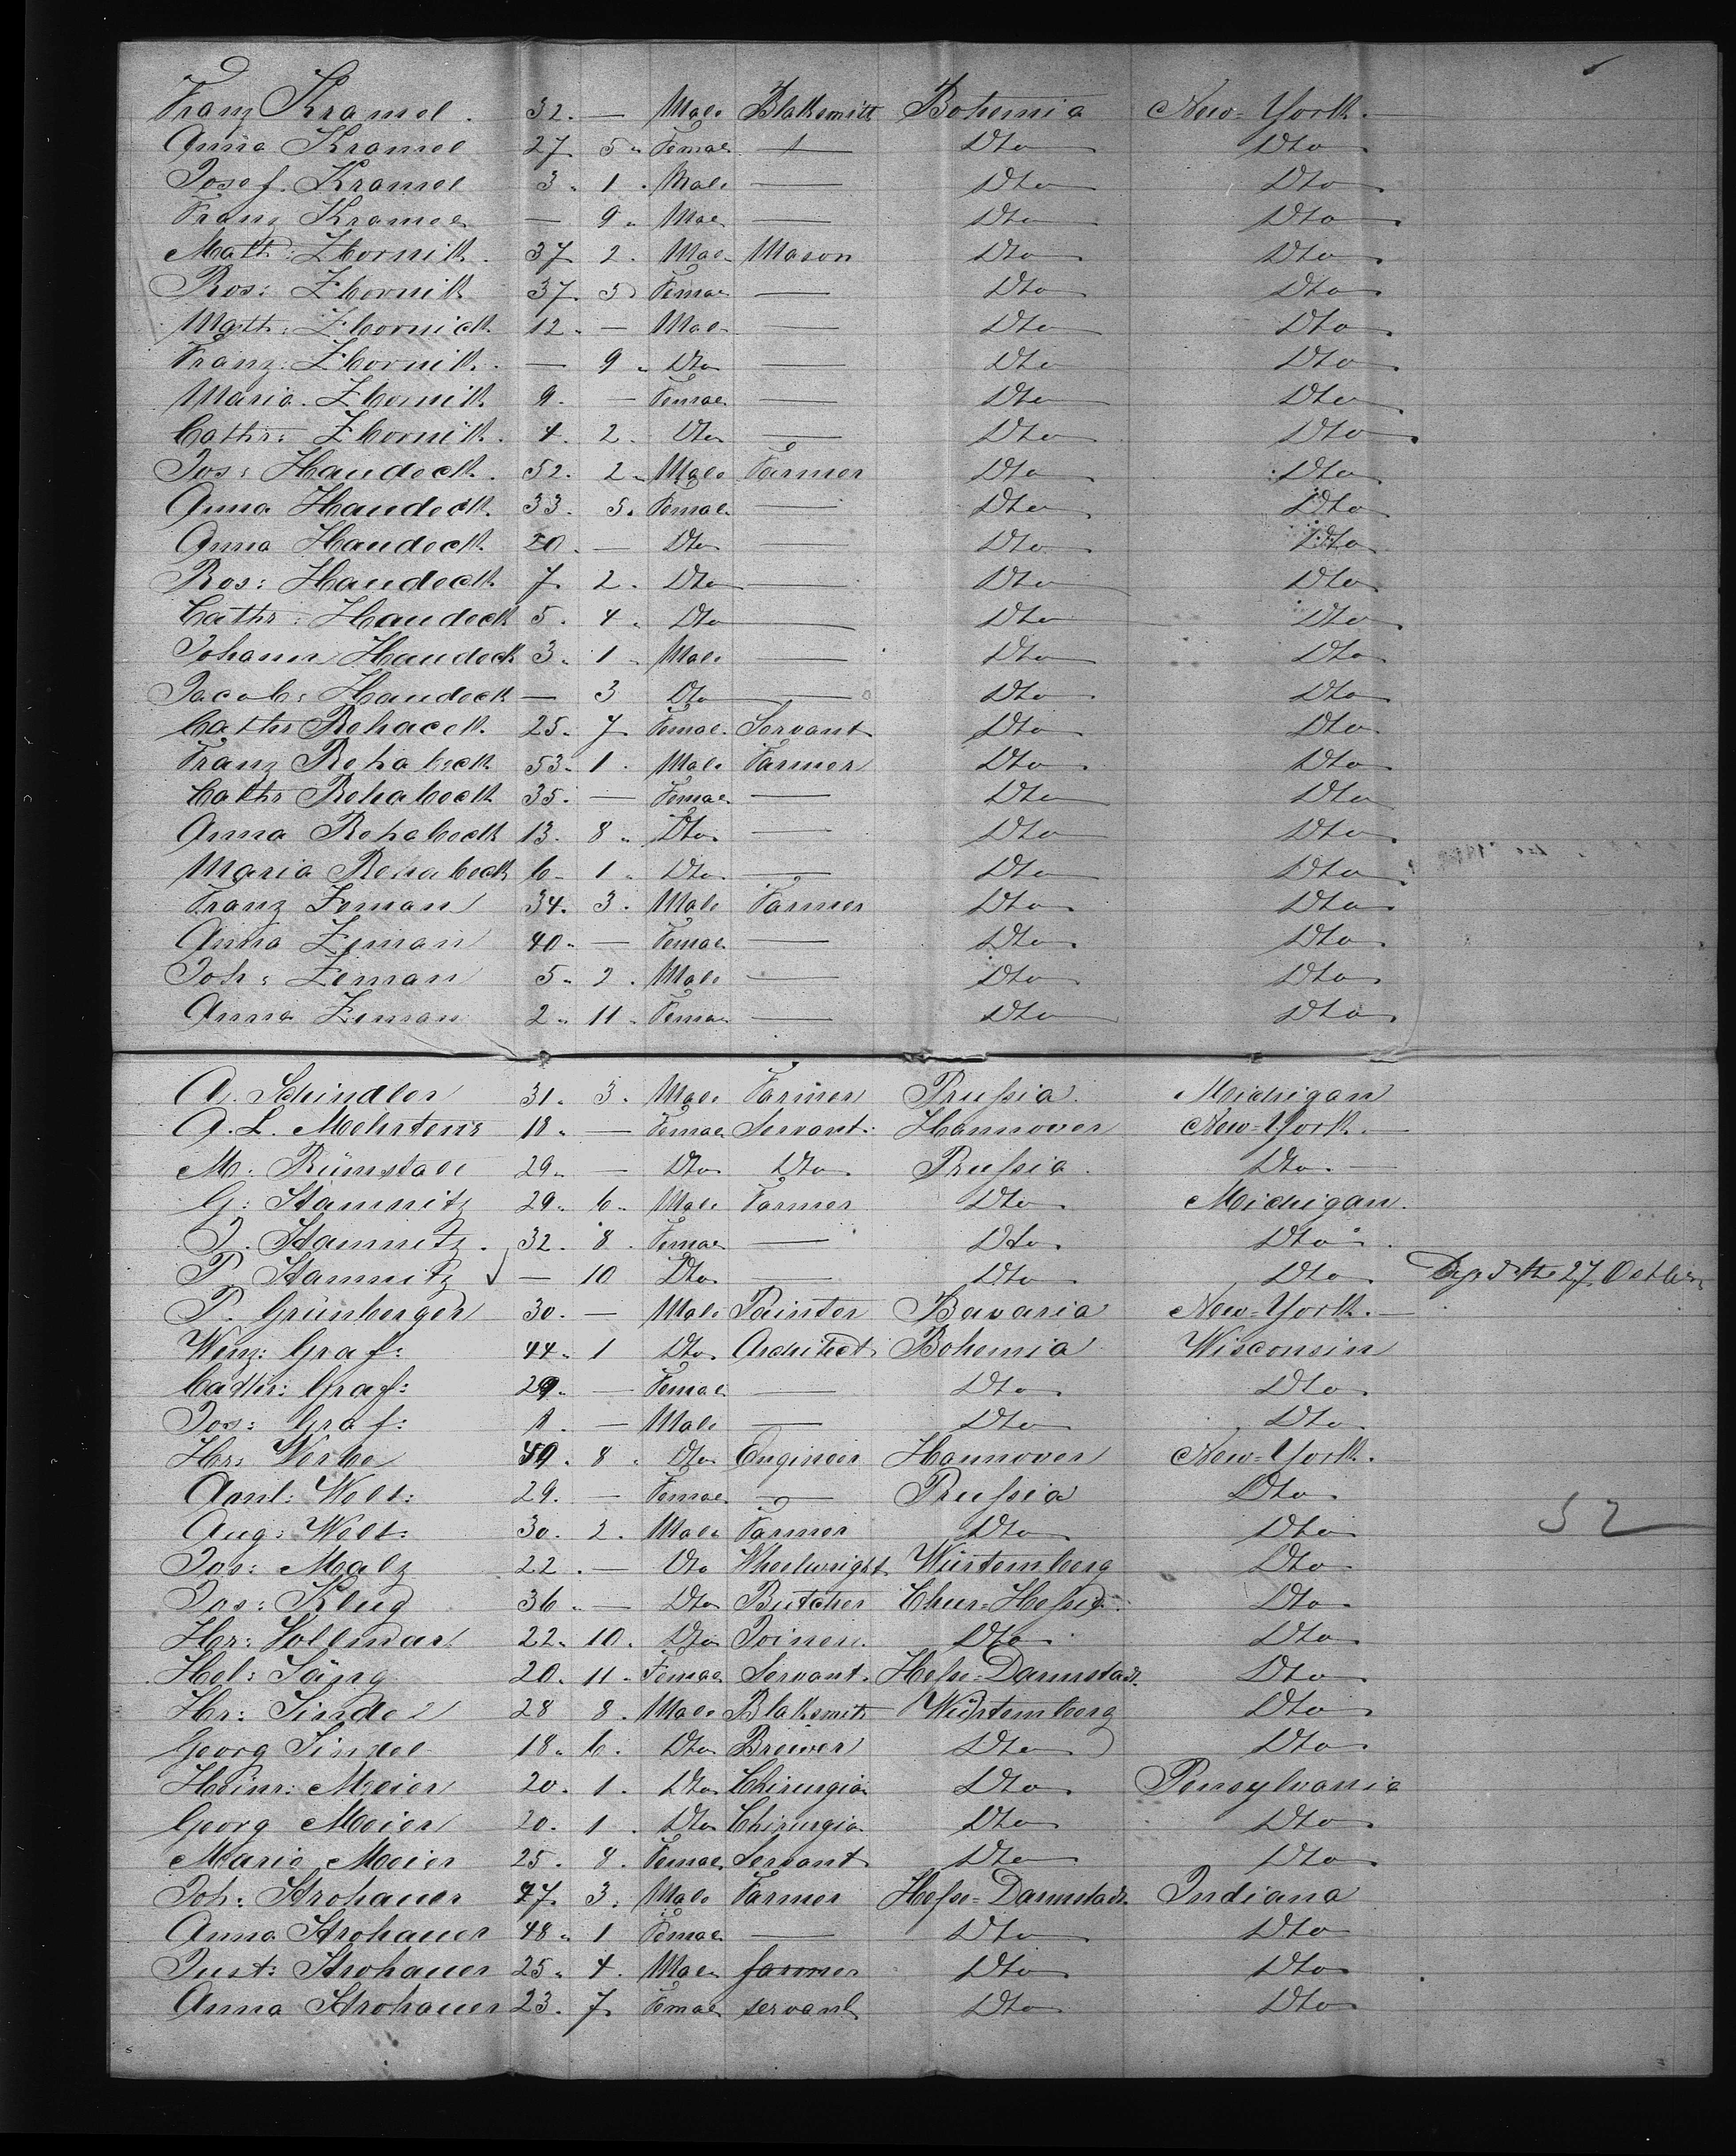 Franz Kramel. 32. — Male Blaksmith Bohemia New-York.
Anna Kramel 27 5 Femal — Dto Dto
Josef Kramel 3. 1. Male — Dto Dto
Franz Kramel — 9. Mal — Dto Dto
Math: Zbornik. 37 2. Mal Mason Dto Dto
Ros: Zbornik 37. 5 Femal — Dto Dto
Math: Zbornick 12. — Mal — Dto Dto
Franz: Zbornik. — 9. Dto — Dto Dto
Maria. Zbornik 9. — Femal — Dto Dto
Cathr: Zbornik. 4. 2. Dto — Dto Dto
Jos: Haudeck. 52. 2. Male Farmer Dto Dto
Anna Haudeck. 33. 5. Femal. — Dto Dto
Anna Haudeck. 20. — Dto — Dto Dto
Ros: Haudeck. 7. 2. Dto — Dto Dto
Cathr: Haudeck 5. 4. Dto — Dto Dto
Johann Haudeck 3. 1. Male — Dto Dto
Jacob: Haudeck — 3 Dto — Dto Dto
Cathr Rehacek. 25. 7. Femal. Servant Dto Dto
Franz Rehabeck 53. 1. Male Farmer Dto Dto
Cathr Rehabeck 35. — Femal — Dto Dto
Anna Rehabeck 13. 8. Dto — Dto Dto
Maria Rehabeck 6. 1. Dto — Dto Dto
Franz Zeman 34. 3. Male Farmer Dto Dto
Anna Zeman 40. — Femal — Dto Dto
Joh: Zeman 5. 2. Male — Dto Dto
Anna Zeman 2. 11. Femal — Dto Dto
A. Schindler 31. 3. Male Farmer Prussia. Michigan
A. L. Mehrtens 18. — Femal Servant. Hannover New-York.
M. Rümstall 29. — Dto Dto Prussia. Dto
G: Stamnitz 29. 6. Male Farmer Dto Michigan.
J. Stamnitz. 32. 8. Femal — Dto Dto
P. Stamnitz — 10 Dto — Dto Dto 27 October
P. Grünberger 30. — Male Painter Bavaria New-York.
Wenz: Graf: 44. 1 Dto Architect Bohemia Wisconsin
Cathr: Graf: 29. — Femal — Dto Dto
Jos: Graf: 1. — Male — Dto Dto
Hr: Werbe 49. 8. Dto Engineer Hannover New-York.
Aml: Wolt: 29. — Femal — Prussia Dto
Aug: Wolt: 30. 2. Male Farmer Dto Dto 52
Jos: Malz 22. — Dto Wheelwright Würtemberg Dto
Jos: Klug 36. — Dto Butcher Chur-Hessia. Dto
Hr: Vollmar 22. 10. Dto Joiner. Dto Dto
Hel: Säng 20. 11. Femal Servant. Hesse-Darmstadt. Dto
Hr: Sindel 28 8. Male Blaksmith Würtemberg Dto
Georg Sindel 18. 6. Dto Brewer Dto Dto
Heinr: Meier 20. 1. Dto Chirurgia Dto Pensylvania
Georg Meier 20. 1. Dto Chirurgia Dto Dto
Maria Meier 25. 8. Femal Servant Dto Dto
Joh: Strohauer 47. 3. Male Farmer Hesse-Darmstadt. Indiana
Anna Strohauer 48. 1 Femal — Dto Dto
Just: Strohauer 25. 4. Male farmer Dto Dto
Anna Strohauer 23. 7. Femal servant Dto Dto